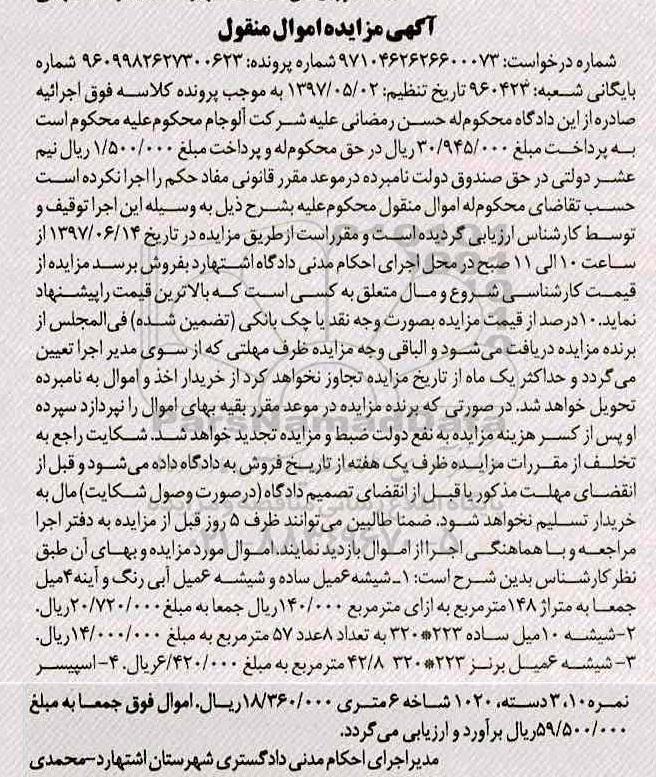 آگهی مزایده اموال منقول
شماره درخواست: ۹۷۱۰۴۶۲۶۲۶۶۰۰۰۷۳ شماره پرونده: ۹۶۰۹۹۸۲۶۲۷۳۰۰۶۲۳ شماره
بایگانی شعبه: ۹۶۰۴۲۳ تاریخ تنظیم: ۱۳۹۷/۰۵/۰۲ به موجب پرونده کلاسه فوق اجرائیه
صادره از این دادگاه محکوم‌له حسن رمضانی علیه شرکت آلوجام محکوم‌علیه محکوم است
به پرداخت مبلغ ۳۰/۹۴۵/۰۰۰ ریال در حق محکوم‌له و پرداخت مبلغ ۱/۵۰۰/۰۰۰ ریال نیم
عشر دولتی در حق صندوق دولت نامبرده در موعد مقرر قانونی مفاد حکم را اجرا نکرده است
حسب تقاضای محکوم‌له اموال منقول محکوم‌علیه بشرح ذیل به وسیله این اجرا توقیف و
توسط کارشناس ارزیابی گردیده است و مقرر است از طریق مزایده در تاریخ ۱۳۹۷/۰۶/۱۴ از
ساعت ۱۰ الی ۱۱ صبح در محل اجرای احکام مدنی دادگاه اشتهارد بفروش برسد مزایده از
قیمت کارشناسی شروع و مال متعلق به کسی است که بالاترین قیمت را پیشنهاد
نماید. ۱۰درصد از قیمت مزایده بصورت وجه نقد یا چک بانکی (تضمین شده) فی‌المجلس از
برنده مزایده دریافت می‌شود و الباقی وجه مزایده ظرف مهلتی که از سوی مدیر اجرا تعیین
می‌گردد و حداکثر یک ماه از تاریخ مزایده تجاوز نخواهد کرد از خریدار اخذ و اموال به نامبرده
تحویل خواهد شد. در صورتی که برنده مزایده در موعد مقرر بقیه بهای اموال را نپردازد سپرده
او پس از کسر هزینه مزایده به نفع دولت ضبط و مزایده تجدید خواهد شد. شکایت راجع به
تخلف از مقررات مزایده ظرف یک هفته از تاریخ فروش به دادگاه داده می‌شود و قبل از
انقضای مهلت مذکور یا قبل از انقضای تصمیم دادگاه (درصورت وصول شکایت) مال به
خریدار تسلیم نخواهد شود. ضمنا طالبین می‌توانند ظرف ۵ روز قبل از مزایده به دفتر اجرا
مراجعه و با هماهنگی اجرا از اموال بازدید نمایند. اموال مورد مزایده و بهای آن طبق
نظر کارشناس بدین شرح است: ۱-شیشه ۶میل ساده و شیشه ۶میل آبی رنگ و آینه ۴میل
جمعا به متراژ ۱۴۸مترمربع به ازای مترمربع ۱۴۰/۰۰۰ریال جمعا به مبلغ ۲۰/۷۲۰/۰۰۰ریال.
۲-شیشه ۱۰میل ساده ۲۲۳*۳۲۰ به تعداد ۸عدد ۵۷ مترمربع به مبلغ ۱۴/۰۰۰/۰۰۰ریال.
۳- شیشه ۶میل برنز ۲۲۳*۳۲۰ ۴۲/۸ مترمربع به مبلغ ۶/۴۲۰/۰۰۰ریال. ۴-اسپیسر
نمره ۳،۱۰دسته، ۱۰۲۰ شاخه ۶متری ۱۸/۳۶۰/۰۰۰ریال. اموال فوق جمعا به مبلغ
۵۹/۵۰۰/۰۰۰ریال برآورد و ارزیابی می‌گردد.
مدیر اجرای احکام مدنی دادگستری شهرستان اشتهارد-محمدی
ParsNamadData